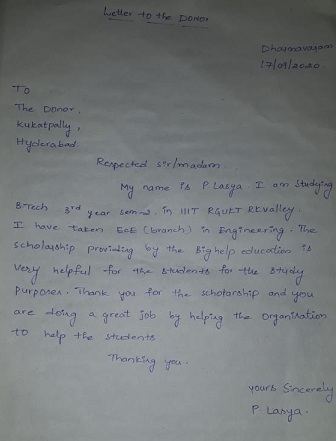 Letter to the Donor
Dharmavaram
17/09/2020.
To
The Donor,
kukatpally,
Hyderabad.
Respected sir/madam.
My name is P Lasya I am studying
BTech 3rd year sem-2. in IIIT RGUKT RKvalley.
I have taken EEE (branch) in Engineering. The
scholarship providing by the Bighelp education is
very helpful for the students for the study
purposes. Thank you for the scholarship and you
are doing a great job by helping the Organisation
to help the students
Thanking you.
yours Sincerely
P Lasya.